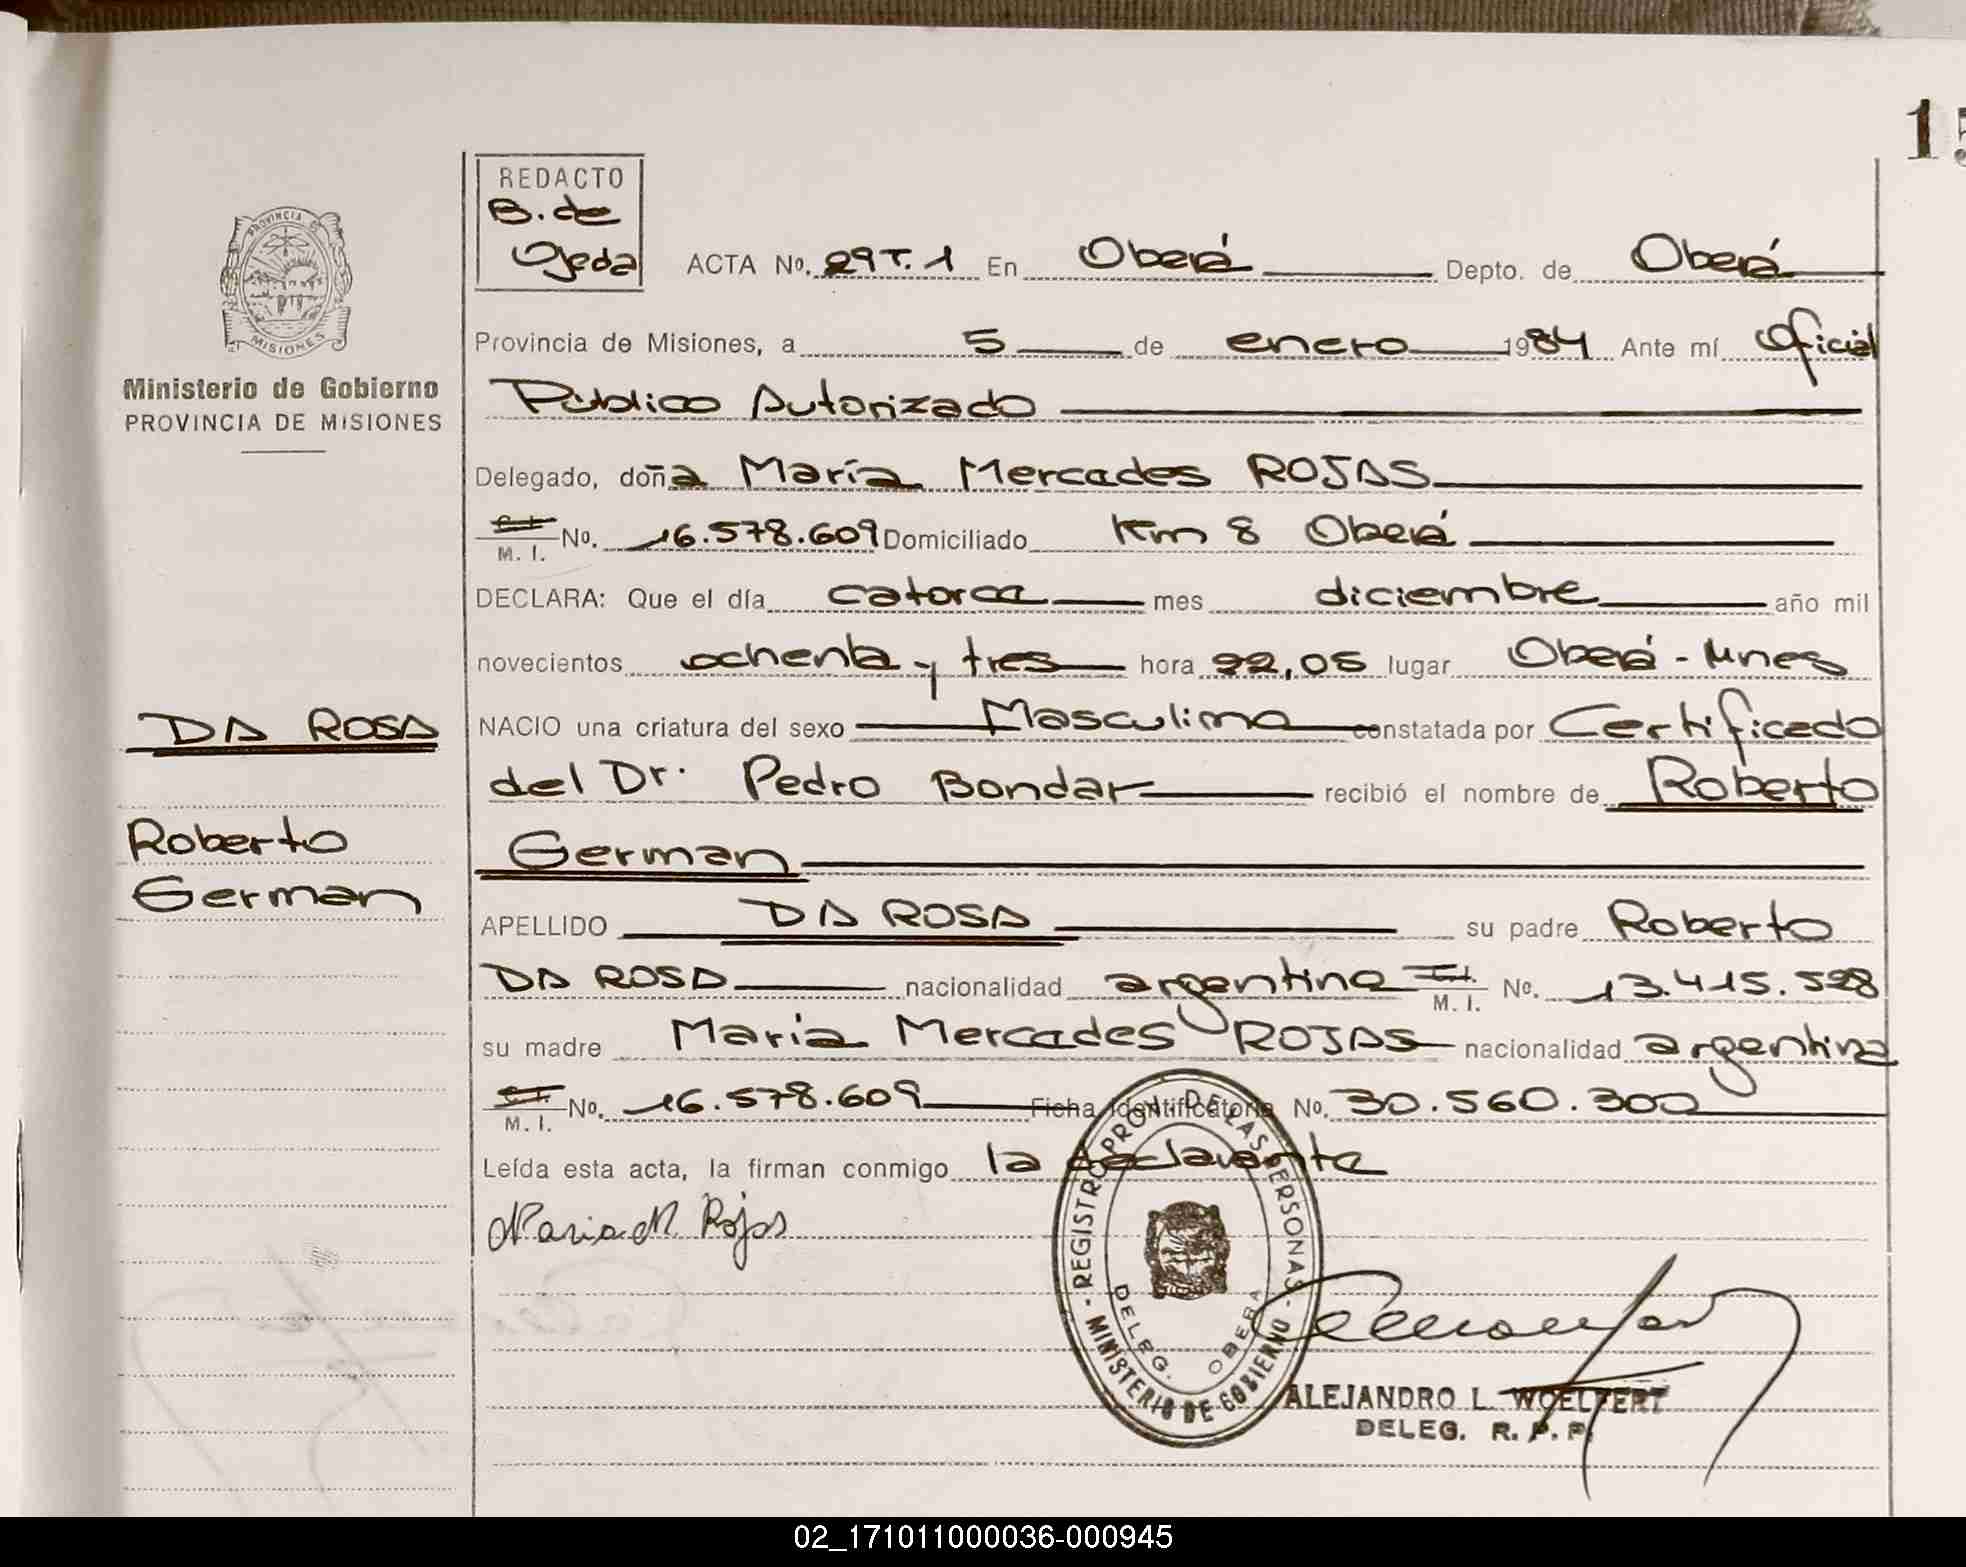 15
REDACTO
B. de
Ojeda
ACTA No. 29 T. 1 En Oberá Depto. de Oberá
PROVINCIA DE
MISIONES
Ministerio de Gobierno
PROVINCIA DE MISIONES
Provincia de Misiones, a 5 de enero 1984 Ante mí Oficial
Público Autorizado
Delegado, doña María Mercedes ROJAS
C.I. M. I. No. 16.578.609 Domiciliado Km 8 Oberá
DECLARA: Que el día catorce mes diciembre año mil
novecientos ochenta y tres hora 22,05 lugar Oberá - Mnes
DA ROSA
NACIO una criatura del sexo Masculino constatada por Certificado
del Dr. Pedro Bondar recibió el nombre de Roberto
Roberto
German
German
APELLIDO DA ROSA su padre Roberto
DA ROSA nacionalidad argentina C.I. M. I. No. 13.415.598
su madre María Mercedes ROJAS nacionalidad argentina
C.I. M. I. No. 16.578.609 Ficha Identificatoria No. 30.560.300
Leída esta acta, la firman conmigo la declarante
Maria M. Rojas
REGISTRO PROV. DE LAS PERSONAS
DELEG. OBERA
MINISTERIO DE GOBIERNO
ALEJANDRO L. WOELFERT
DELEG. R. P. P.
02_171011000036-000945